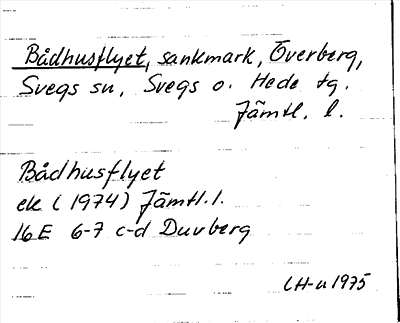 Bådhusflyet, sankmark, Överberg,
Svegs sn, Svegs o. Hede tg.
Jämtl. l.
Bådhusflyet
ek (1974) Jämtl. l.
16E 6-7 c-d Duvberg
LH-u 1975